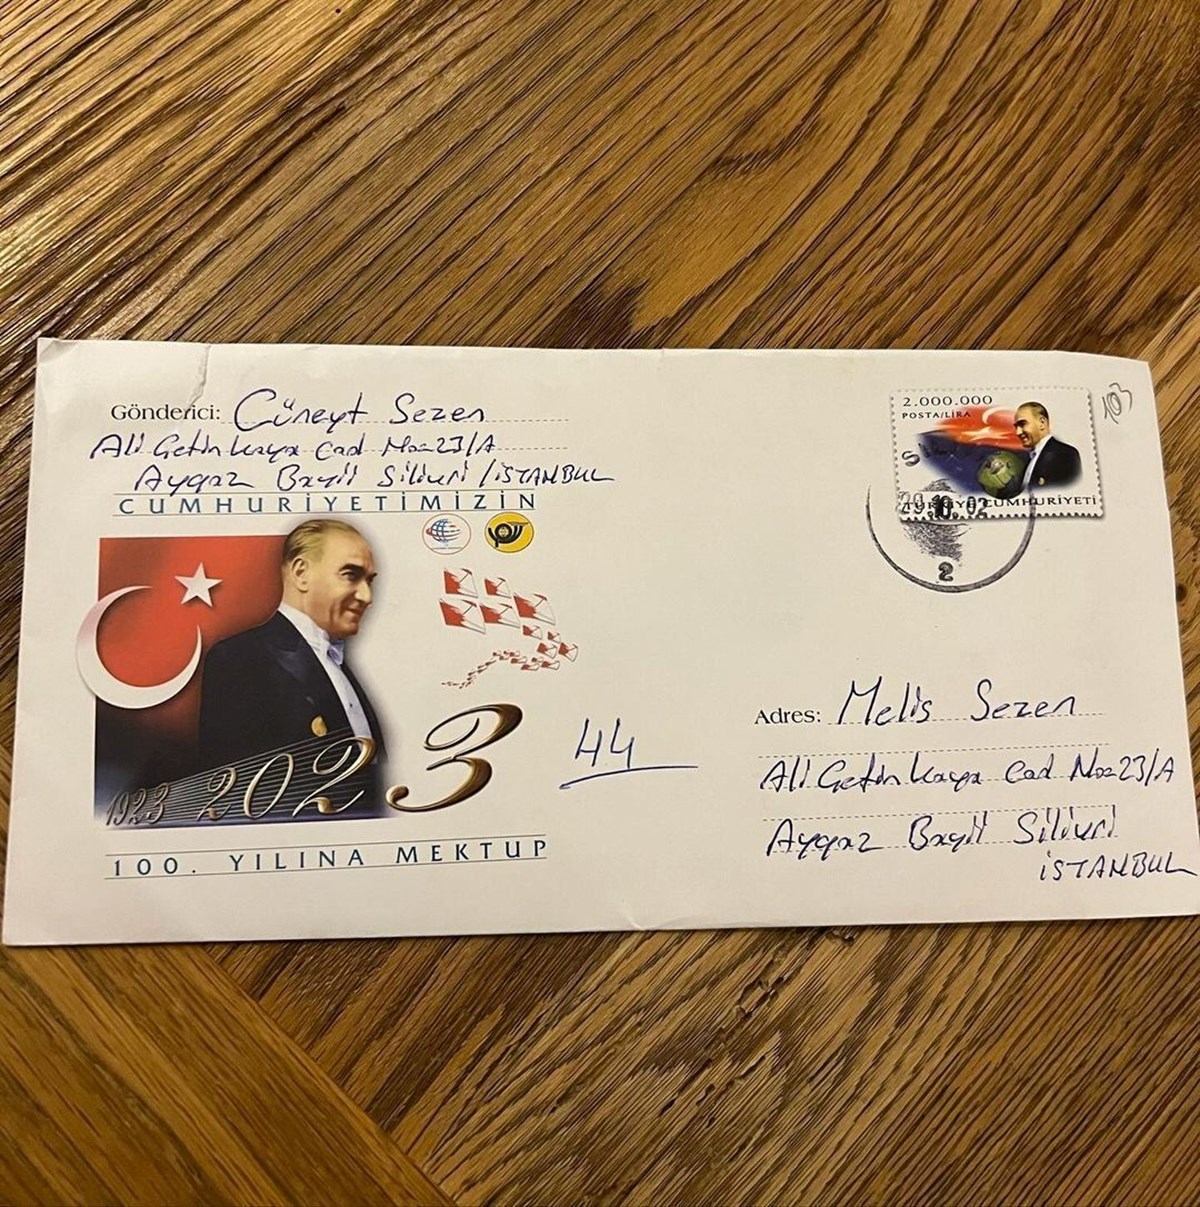 Gönderici: Cüneyt Sezen
Ali Çetin Kaya Cad No=23/A
Aygaz Bayii Silivri / İSTANBUL
CUMHURİYETİMİZİN
1923 2023
100. YILINA MEKTUP
44
2.000.000
POSTA/LİRA
TÜRKİYE CUMHURİYETİ
29.10.02
2
103
Adres: Melis Sezen
Ali Çetin Kaya Cad No=23/A
Aygaz Bayii Silivri
İSTANBUL